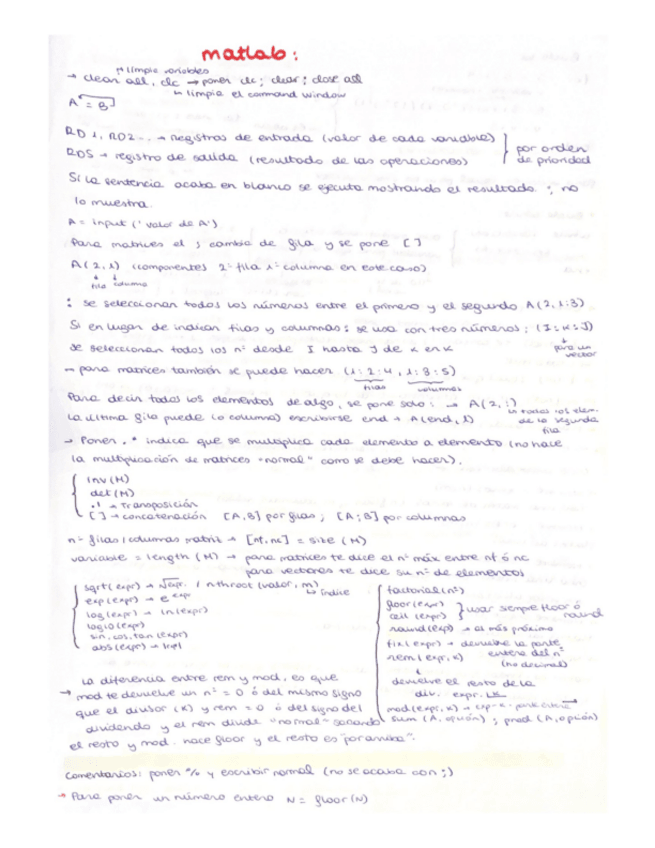 matlab:
↱ limpia variables
→ clear all, clc → poner clc; clear; close all
↳ limpia el command window
A = B
RD1, RD2... → registros de entrada (valor de cada variable)
RDS → registro de salida (resultado de las operaciones)
por orden de prioridad
Si la sentencia acaba en blanco se ejecuta mostrando el resultado. ; no
lo muestra.
A = input ('valor de A')
Para matrices el ; cambia de fila y se pone [ ]
A(2,1) (componentes 2ª fila 1ª columna en este caso)
fila columna
: se seleccionan todos los números entre el primero y el segundo A(2,1:3)
Si en lugar de indicar filas y columnas: se usa con tres números: (I:K:J)
se seleccionan todos los nº desde I hasta J de K en K
para un vector
→ para matrices también se puede hacer (1:2:4, 1:3:5)
filas columnas
Para decir todos los elementos de algo, se pone solo: → A(2,:)
↳ todos los elem. de la segunda fila
La última fila puede (o columna) escribirse end → A(end,1)
→ Poner .* indica que se multiplica cada elemento a elemento (no hace
la multiplicación de matrices "normal" como se debe hacer).
inv(M)
det(M)
.' → Transposición
[ ] → concatenación [A,B] por filas; [A;B] por columnas
nº filas/columnas matriz → [nf,nc] = size (M)
variable = length (M) → para matrices te dice el nº máx entre nf ó nc
para vectores te dice su nº de elementos
sqrt(expr) → √expr. / nthroot (valor, m)
↳ índice
exp(expr) → e^expr
log(expr) → ln(expr)
log10(expr)
sin, cos, tan (expr)
abs(expr) → |expr|
factorial(nº)
floor(expr)
ceil (expr)
usar siempre floor ó round
round(exp) → al más próximo
fix(expr) → devuelve la parte entera del nº (no decimal)
rem(expr, K)
↓
devuelve el resto de la
div. expr. LK
mod(expr, K) → exp - K · parte entera
sum (A, opción) ; prod (A, opción)
La diferencia entre rem y mod, es que
→ mod te devuelve un nº = 0 ó del mismo signo
que el divisor (K) y rem = 0 ó del signo del
dividendo y el rem divide "normal" sacando
el resto y mod hace floor y el resto es "por arriba".
Comentarios: poner % y escribir normal (no se acaba con ;)
→ Para poner un número entero N = floor(N)